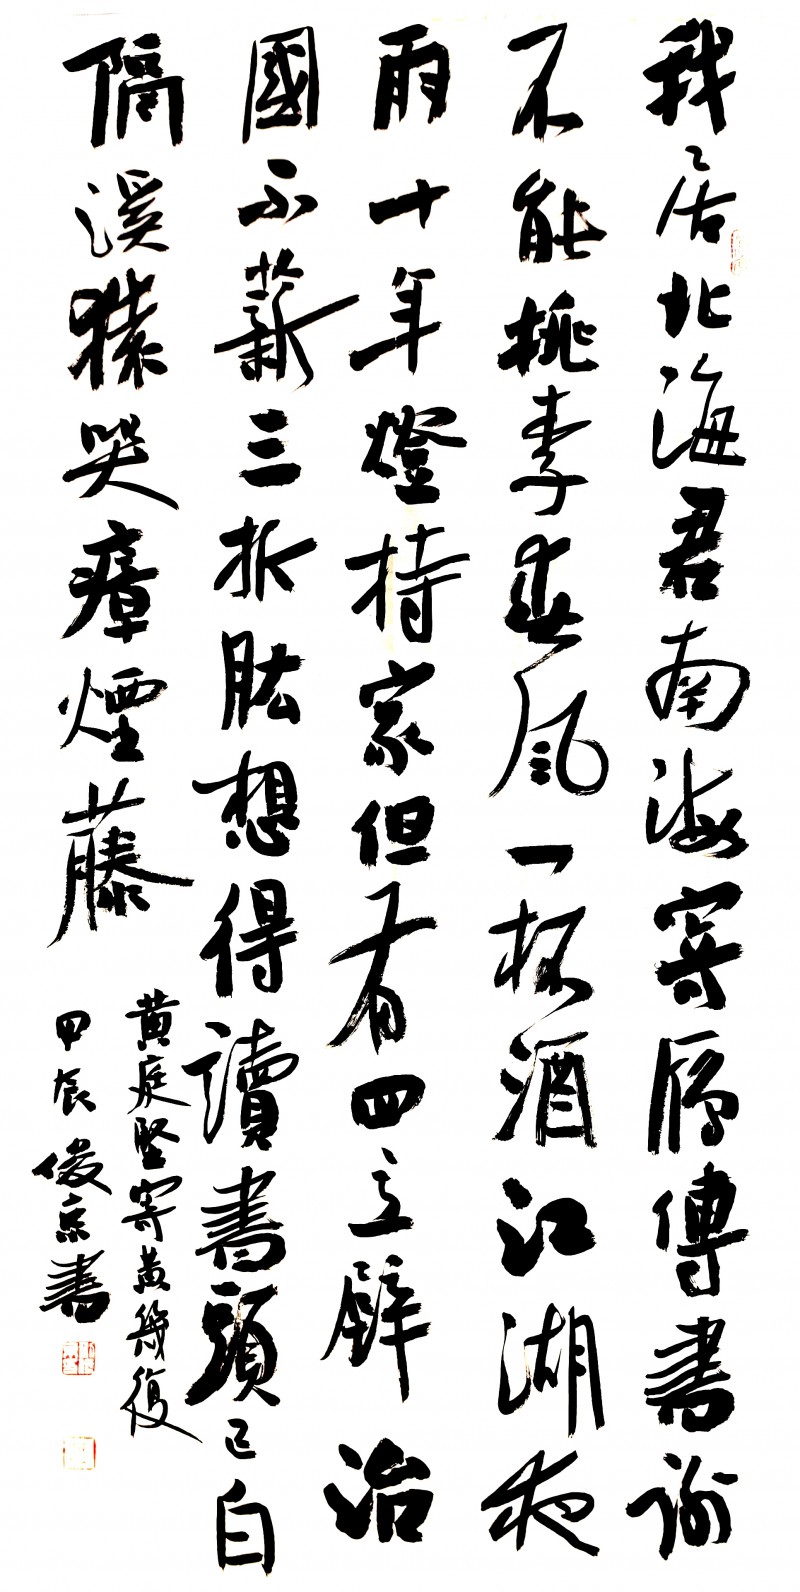 我居北海君南海寄鴈傳書謝
不能桃李春風一杯酒江湖夜
雨十年燈持家但有四立壁治
國不蘄三折肱想得讀書頭已白
隔溪猿哭瘴煙藤
黄庭堅寄黄幾復
甲辰俊京書